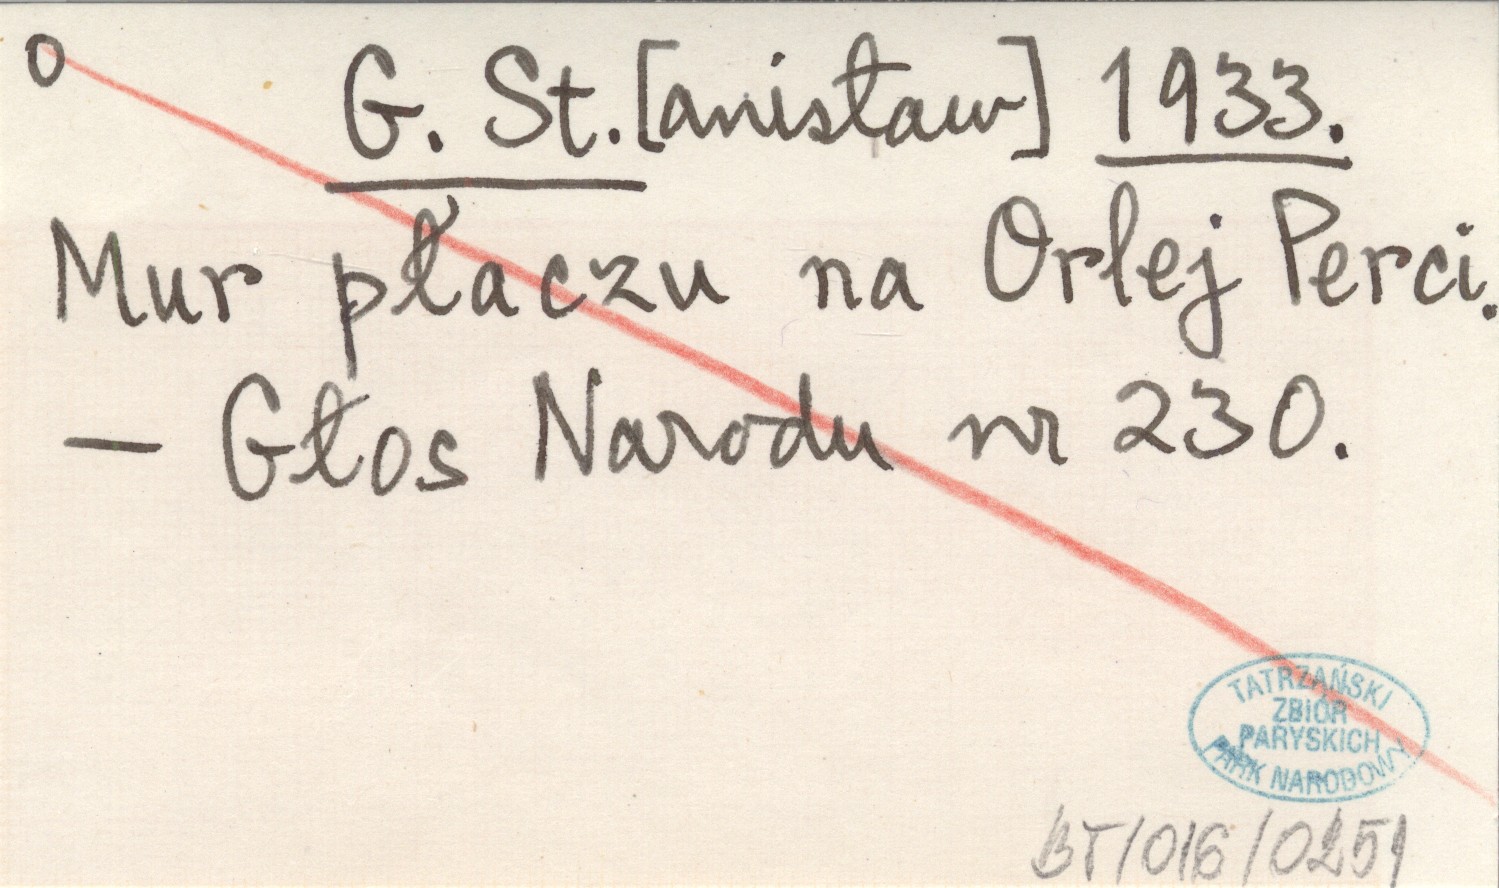 o G. St.[anisław] 1933.
Mur płaczu na Orlej Perci.
— Głos Narodu nr 230.
TATRZAŃSKI
ZBIÓR
PARYSKICH
PARK NARODOWY
BT/016/0251